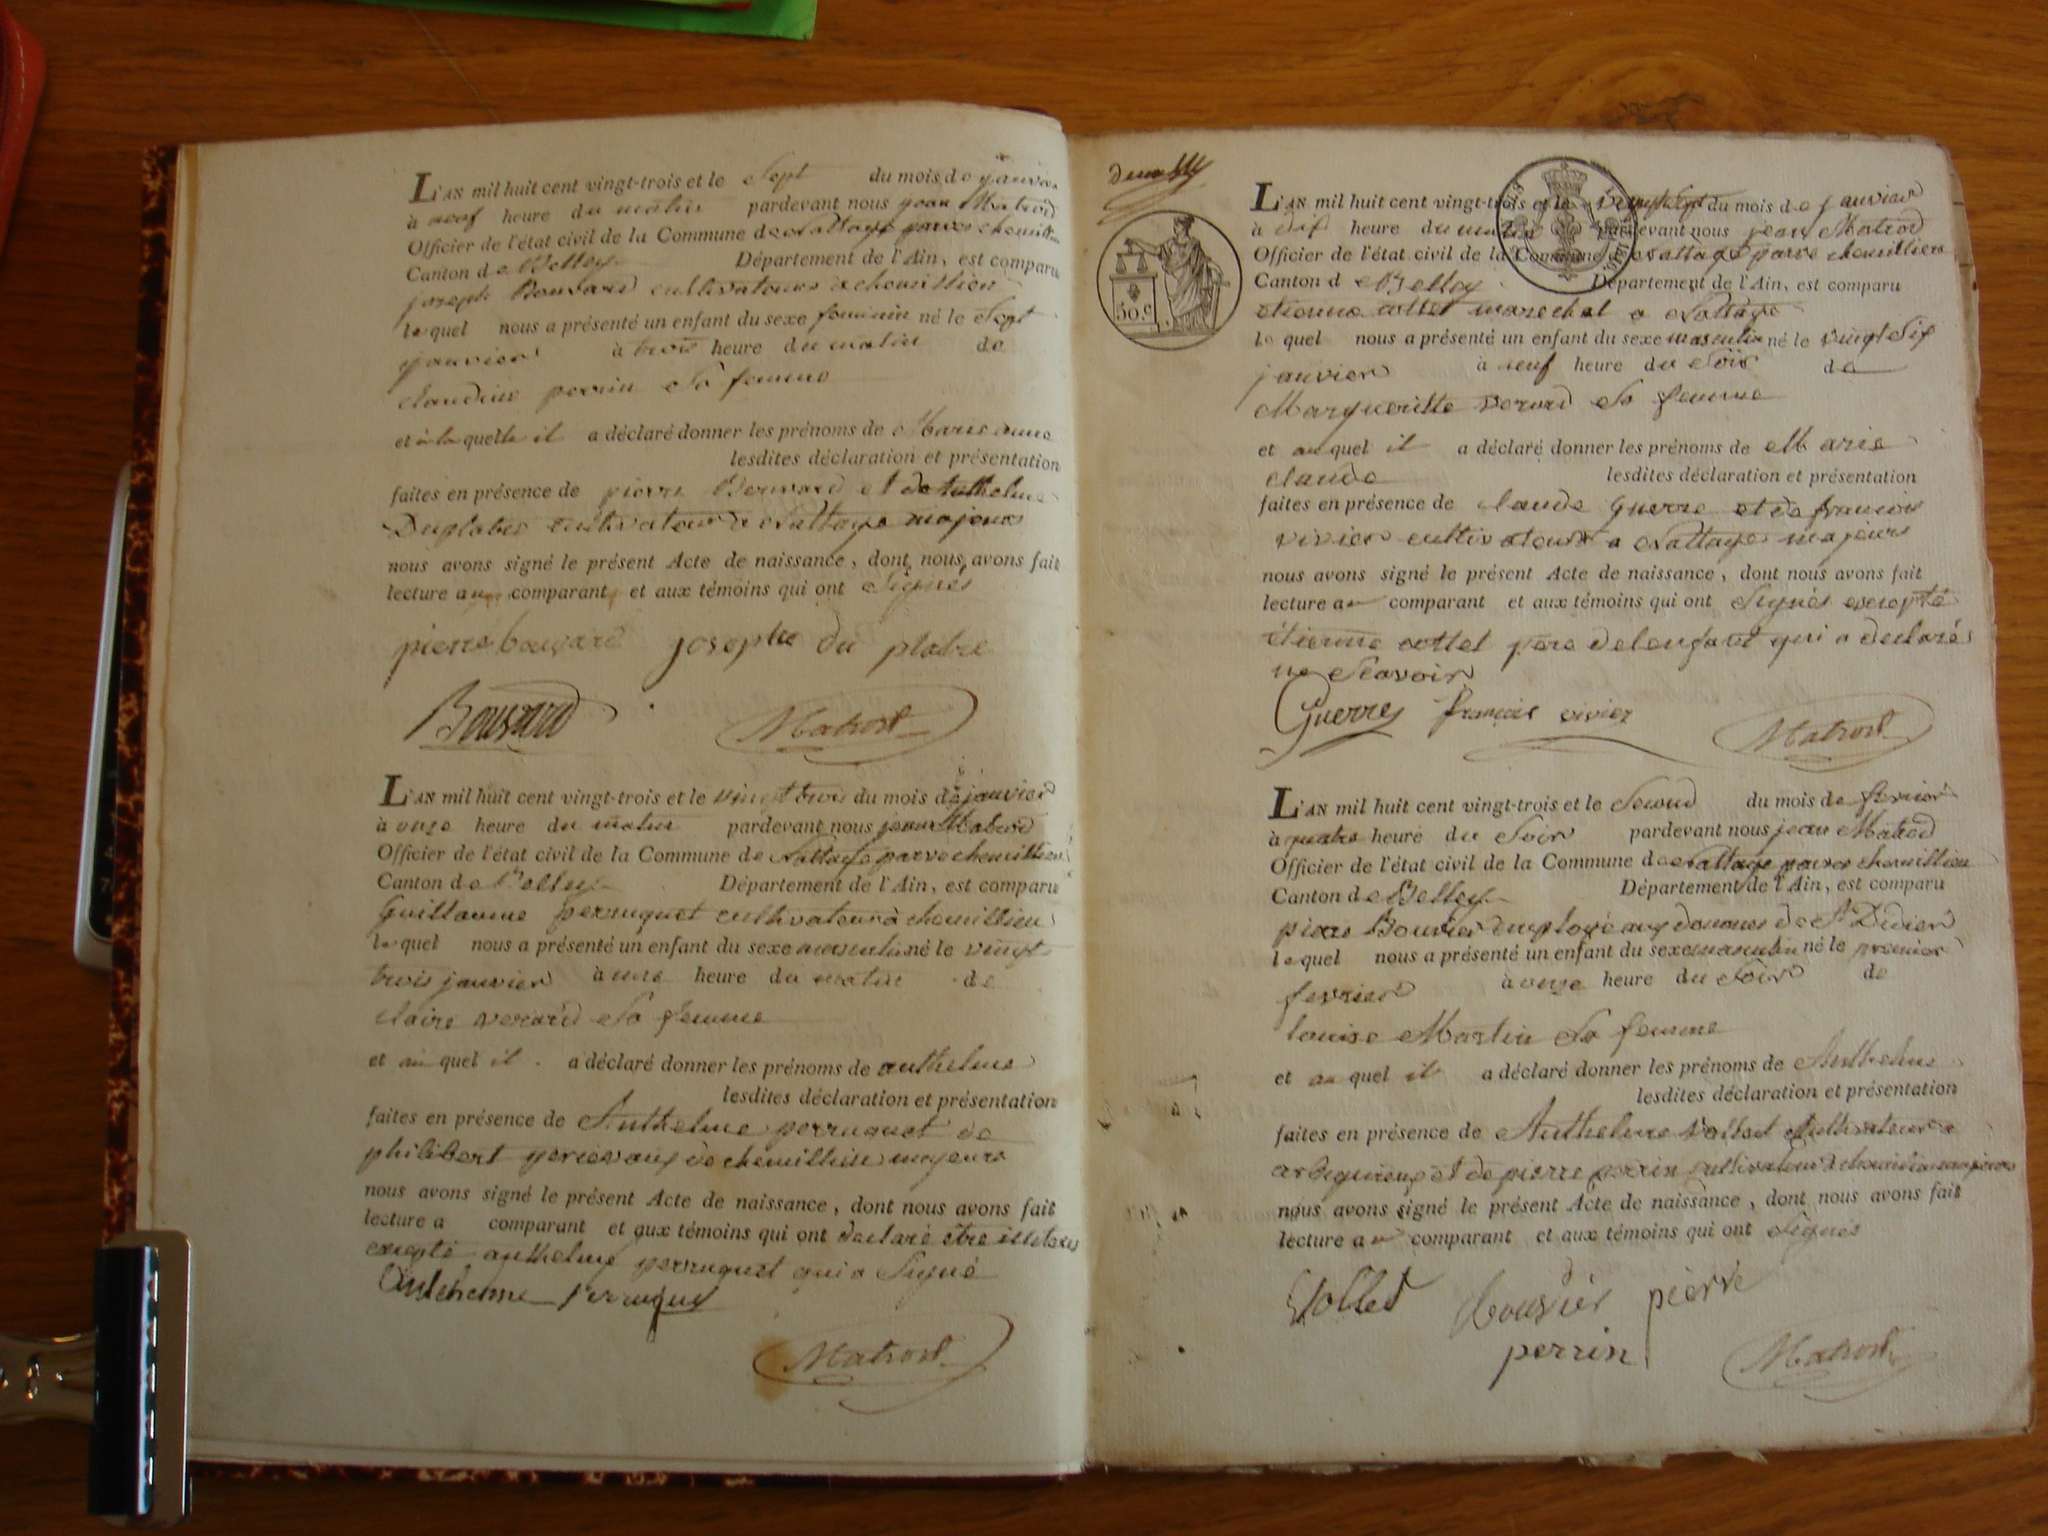 L'AN mil huit cent vingt-trois et le Sept du mois de janvier
à neuf heure du matin pardevant nous jean Matrod
Officier de l'état civil de la Commune de
Canton de Belley Département de l'Ain, est comparu
joseph Bouvard cultivateur à chemillieu
lequel nous a présenté un enfant du sexe feminin né le Sept
janvier à trois heure du matin de
claudine perrin Sa femme
et à la quelle il a déclaré donner les prénoms de Marie anne
lesdites déclaration et présentation
faites en présence de pierre Bouvard et de anthelme
Duplatre cultivateur a majeurs
nous avons signé le présent Acte de naissance, dont nous avons fait
lecture au comparant et aux témoins qui ont Signés
pierre bouvard josephte du platre
Bouvard Matrod
L'AN mil huit cent vingt-trois et le vingt trois du mois de janvier
à onze heure du matin pardevant nous jean Matrod
Officier de l'état civil de la Commune de
Canton de Belley Département de l'Ain, est comparu
Guillaume perruquet cultivateur à chemillieu
lequel nous a présenté un enfant du sexe masculin né le vingt
trois janvier à une heure du matin de
claire verard Sa femme
et au quel il a déclaré donner les prénoms de anthelme
lesdites déclaration et présentation
faites en présence de Anthelme perruquet de
philibert de chemillieu majeurs
nous avons signé le présent Acte de naissance, dont nous avons fait
lecture a comparant et aux témoins qui ont declaré être illeteres
excepté anthelme perruquet qui a Signé
Matrod
L'AN mil huit cent vingt-trois et le vingt Sept du mois de janvier
à dif heure du matin pardevant nous jean Matrod
Officier de l'état civil de la Commune
Canton de Belley Département de l'Ain, est comparu
etienne cottet marechal a
50.C
lequel nous a présenté un enfant du sexe masculin né le vingt Sif
janvier à neuf heure du Soir de
Margueritte verard Sa femme
et au quel il a déclaré donner les prénoms de Marie
claude lesdites déclaration et présentation
faites en présence de claude guerre et de francois
vivier cultivateurs a majeurs
nous avons signé le présent Acte de naissance, dont nous avons fait
lecture au comparant et aux témoins qui ont Signés excepté
étienne cottet père de lenfant qui a declaré
ne Scavoir
Guerre françois vivier Matrod
L'AN mil huit cent vingt-trois et le Second du mois de fevrier
à quatre heure du Soir pardevant nous jean Matrod
Officier de l'état civil de la Commune de
Canton de Belley Département de l'Ain, est comparu
pierre Bouvier employé aux douanes de St Didier
lequel nous a présenté un enfant du sexe masculin né le premier
fevrier à onze heure du Soir de
louise Martin Sa femme
et au quel il a déclaré donner les prénoms de Anthelme
lesdites déclaration et présentation
faites en présence de Anthelme cultivateur a
et de pierre perrin cultivateur à chemillieu majeurs
nous avons signé le présent Acte de naissance, dont nous avons fait
lecture au comparant et aux témoins qui ont Signés
bouvier pierre
perrin Matrod